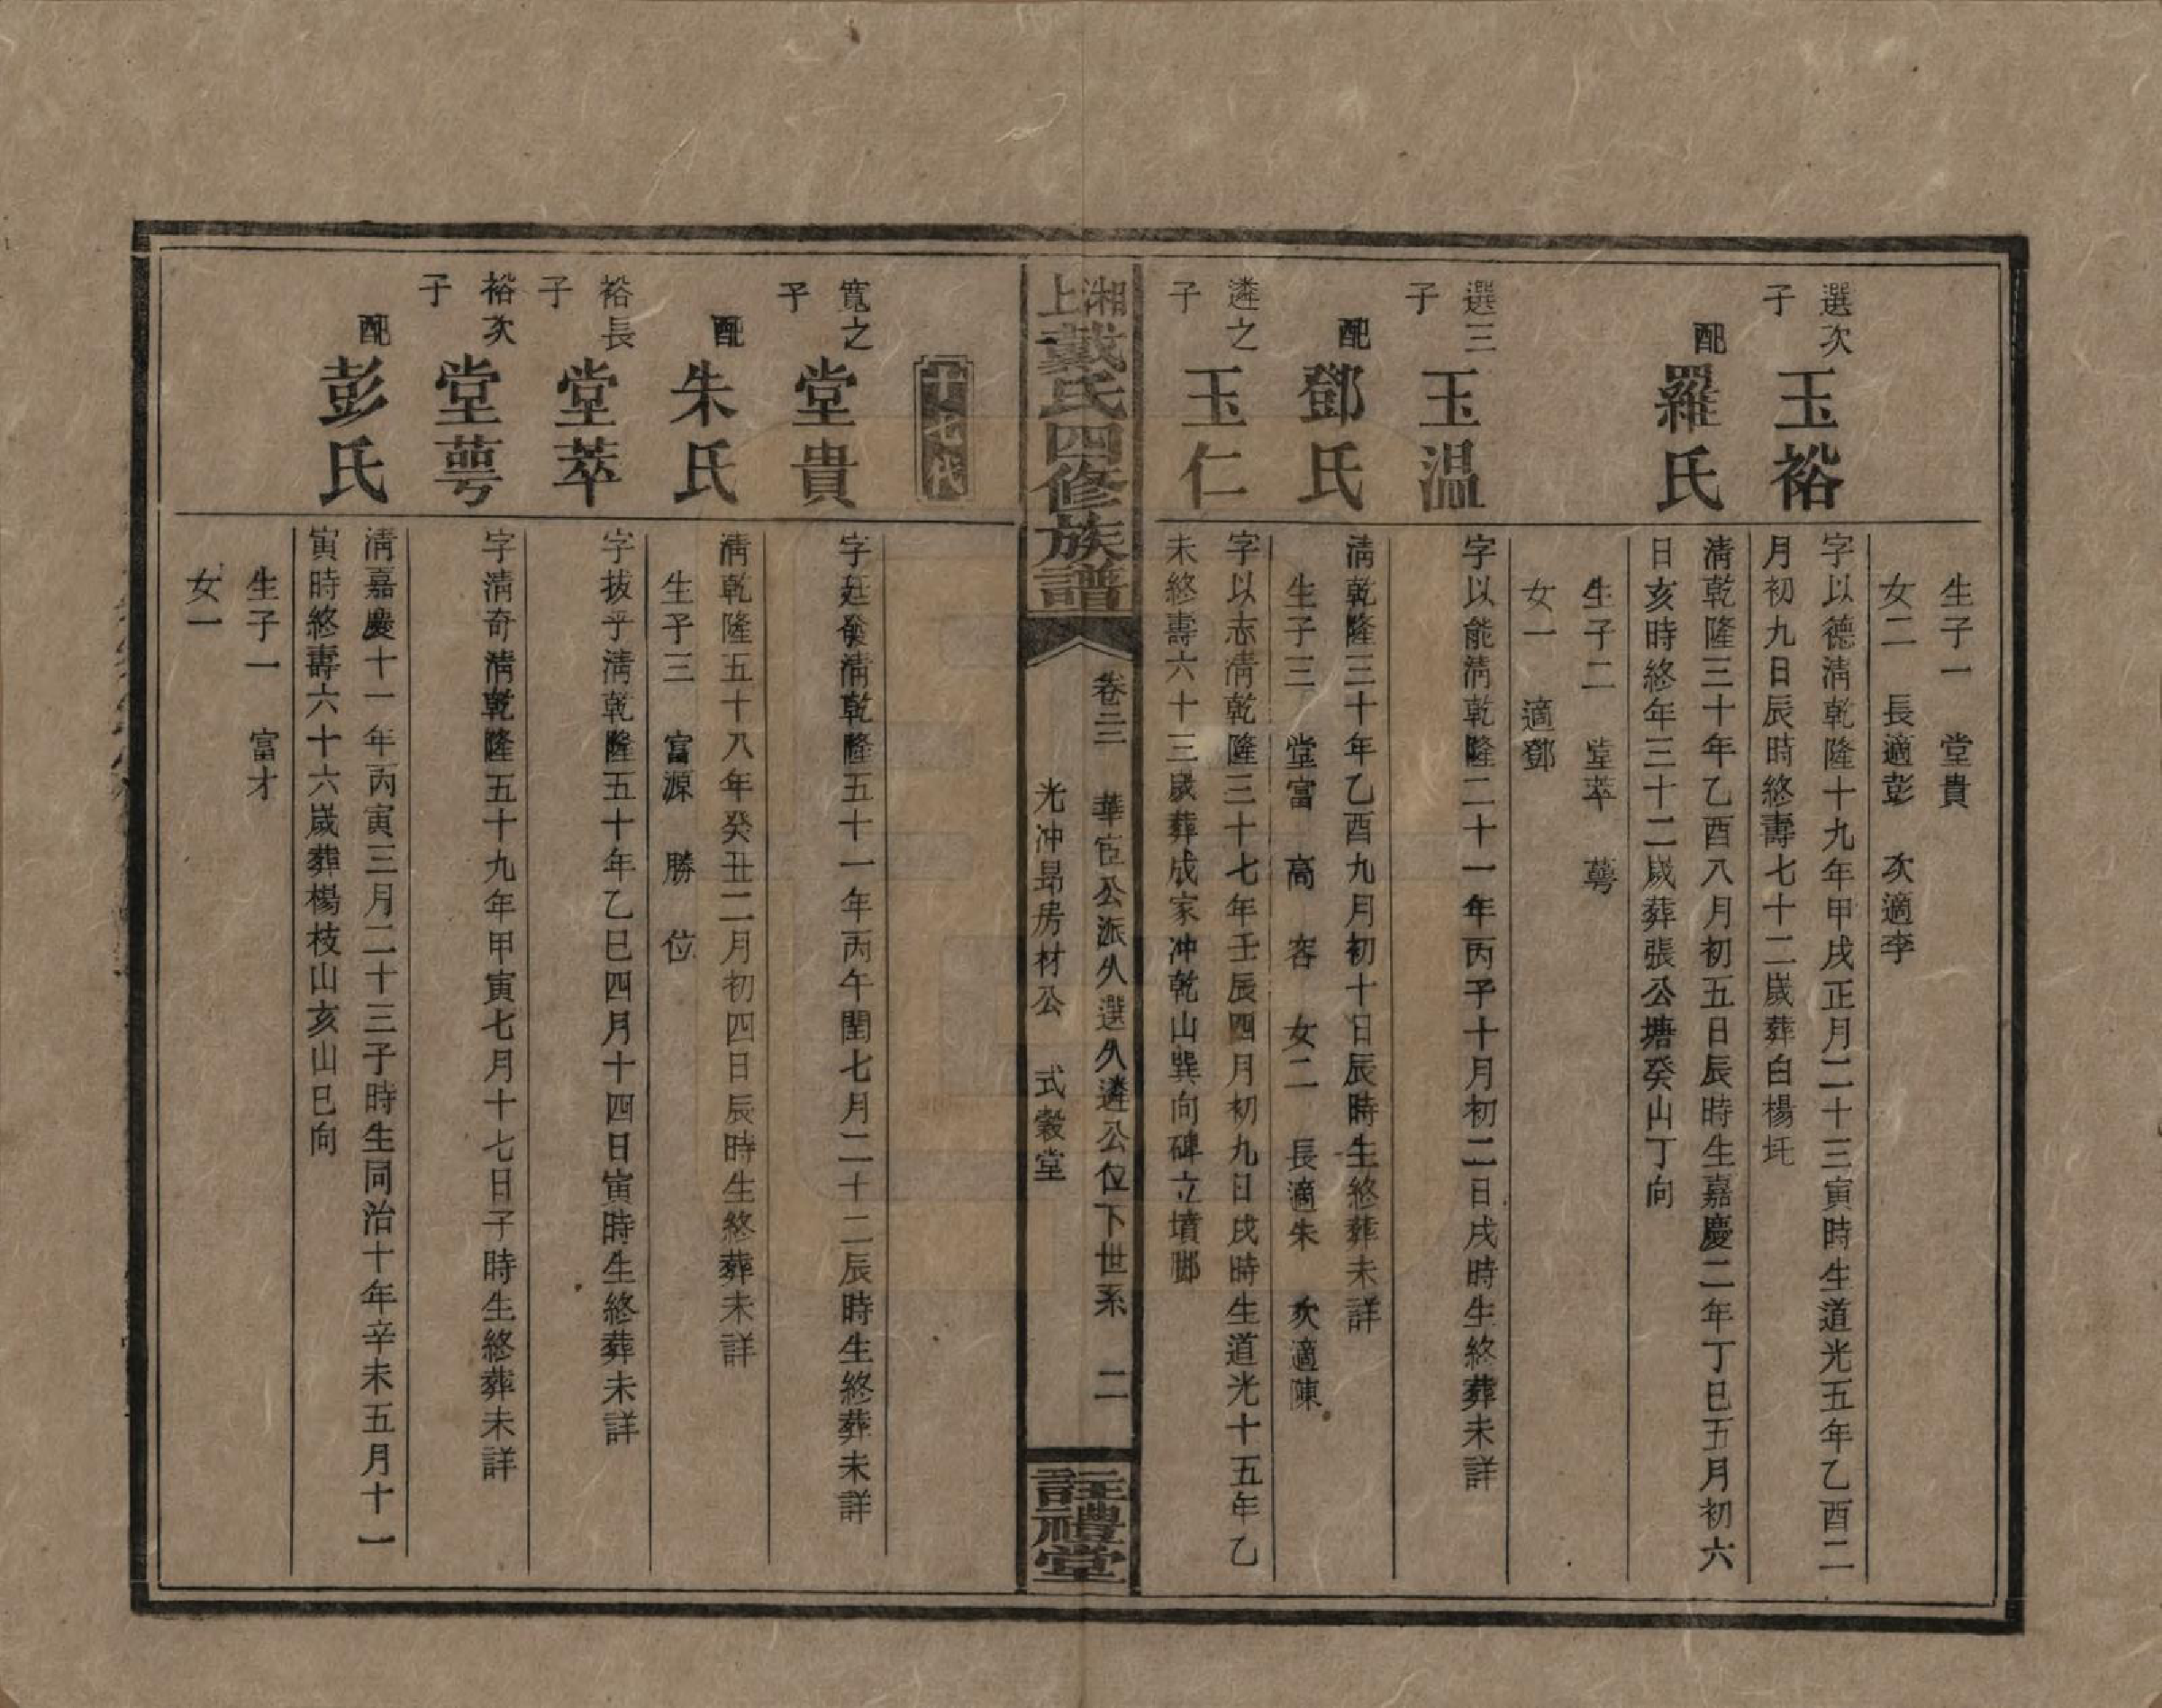 生子一　堂貴
女二　長適彭　次適李
選次子
玉裕
字以德清乾隆十九年甲戌正月二十三寅時生道光五年乙酉二
月初九日辰時終壽七十二歲葬白楊圫
配
羅氏
清乾隆三十年乙酉八月初五日辰時生嘉慶二年丁巳五月初六
日亥時終年三十二歲葬張公塘癸山丁向
生子二　堂萃　萼
女一　適鄧
選三子
玉溫
字以能清乾隆二十一年丙子十月初二日戌時生終葬未詳
配
鄧氏
清乾隆三十年乙酉九月初十日辰時生終葬未詳
生子三　堂富　高　容　女二　長適朱　次適陳
遴之子
玉仁
字以志清乾隆三十七年壬辰四月初九日戌時生道光十五年乙
未終壽六十三歲葬成家冲乾山巽向碑立墳腳
湘上戴氏四修族譜
卷三　華官公派久選久遴公位下世系　二
光冲昂房材公　式穀堂
註禮堂
十七代
寬之子
堂貴
字廷發清乾隆五十一年丙午閏七月二十二辰時生終葬未詳
配
朱氏
清乾隆五十八年癸丑二月初四日辰時生終葬未詳
生子三　富源　勝　位
裕長子
堂萃
字拔乎清乾隆五十年乙巳四月十四日寅時生終葬未詳
裕次子
堂萼
字清奇清乾隆五十九年甲寅七月十七日子時生終葬未詳
配
彭氏
清嘉慶十一年丙寅三月二十三子時生同治十年辛未五月十一
寅時終壽六十六歲葬楊枝山亥山巳向
生子一　富才
女一